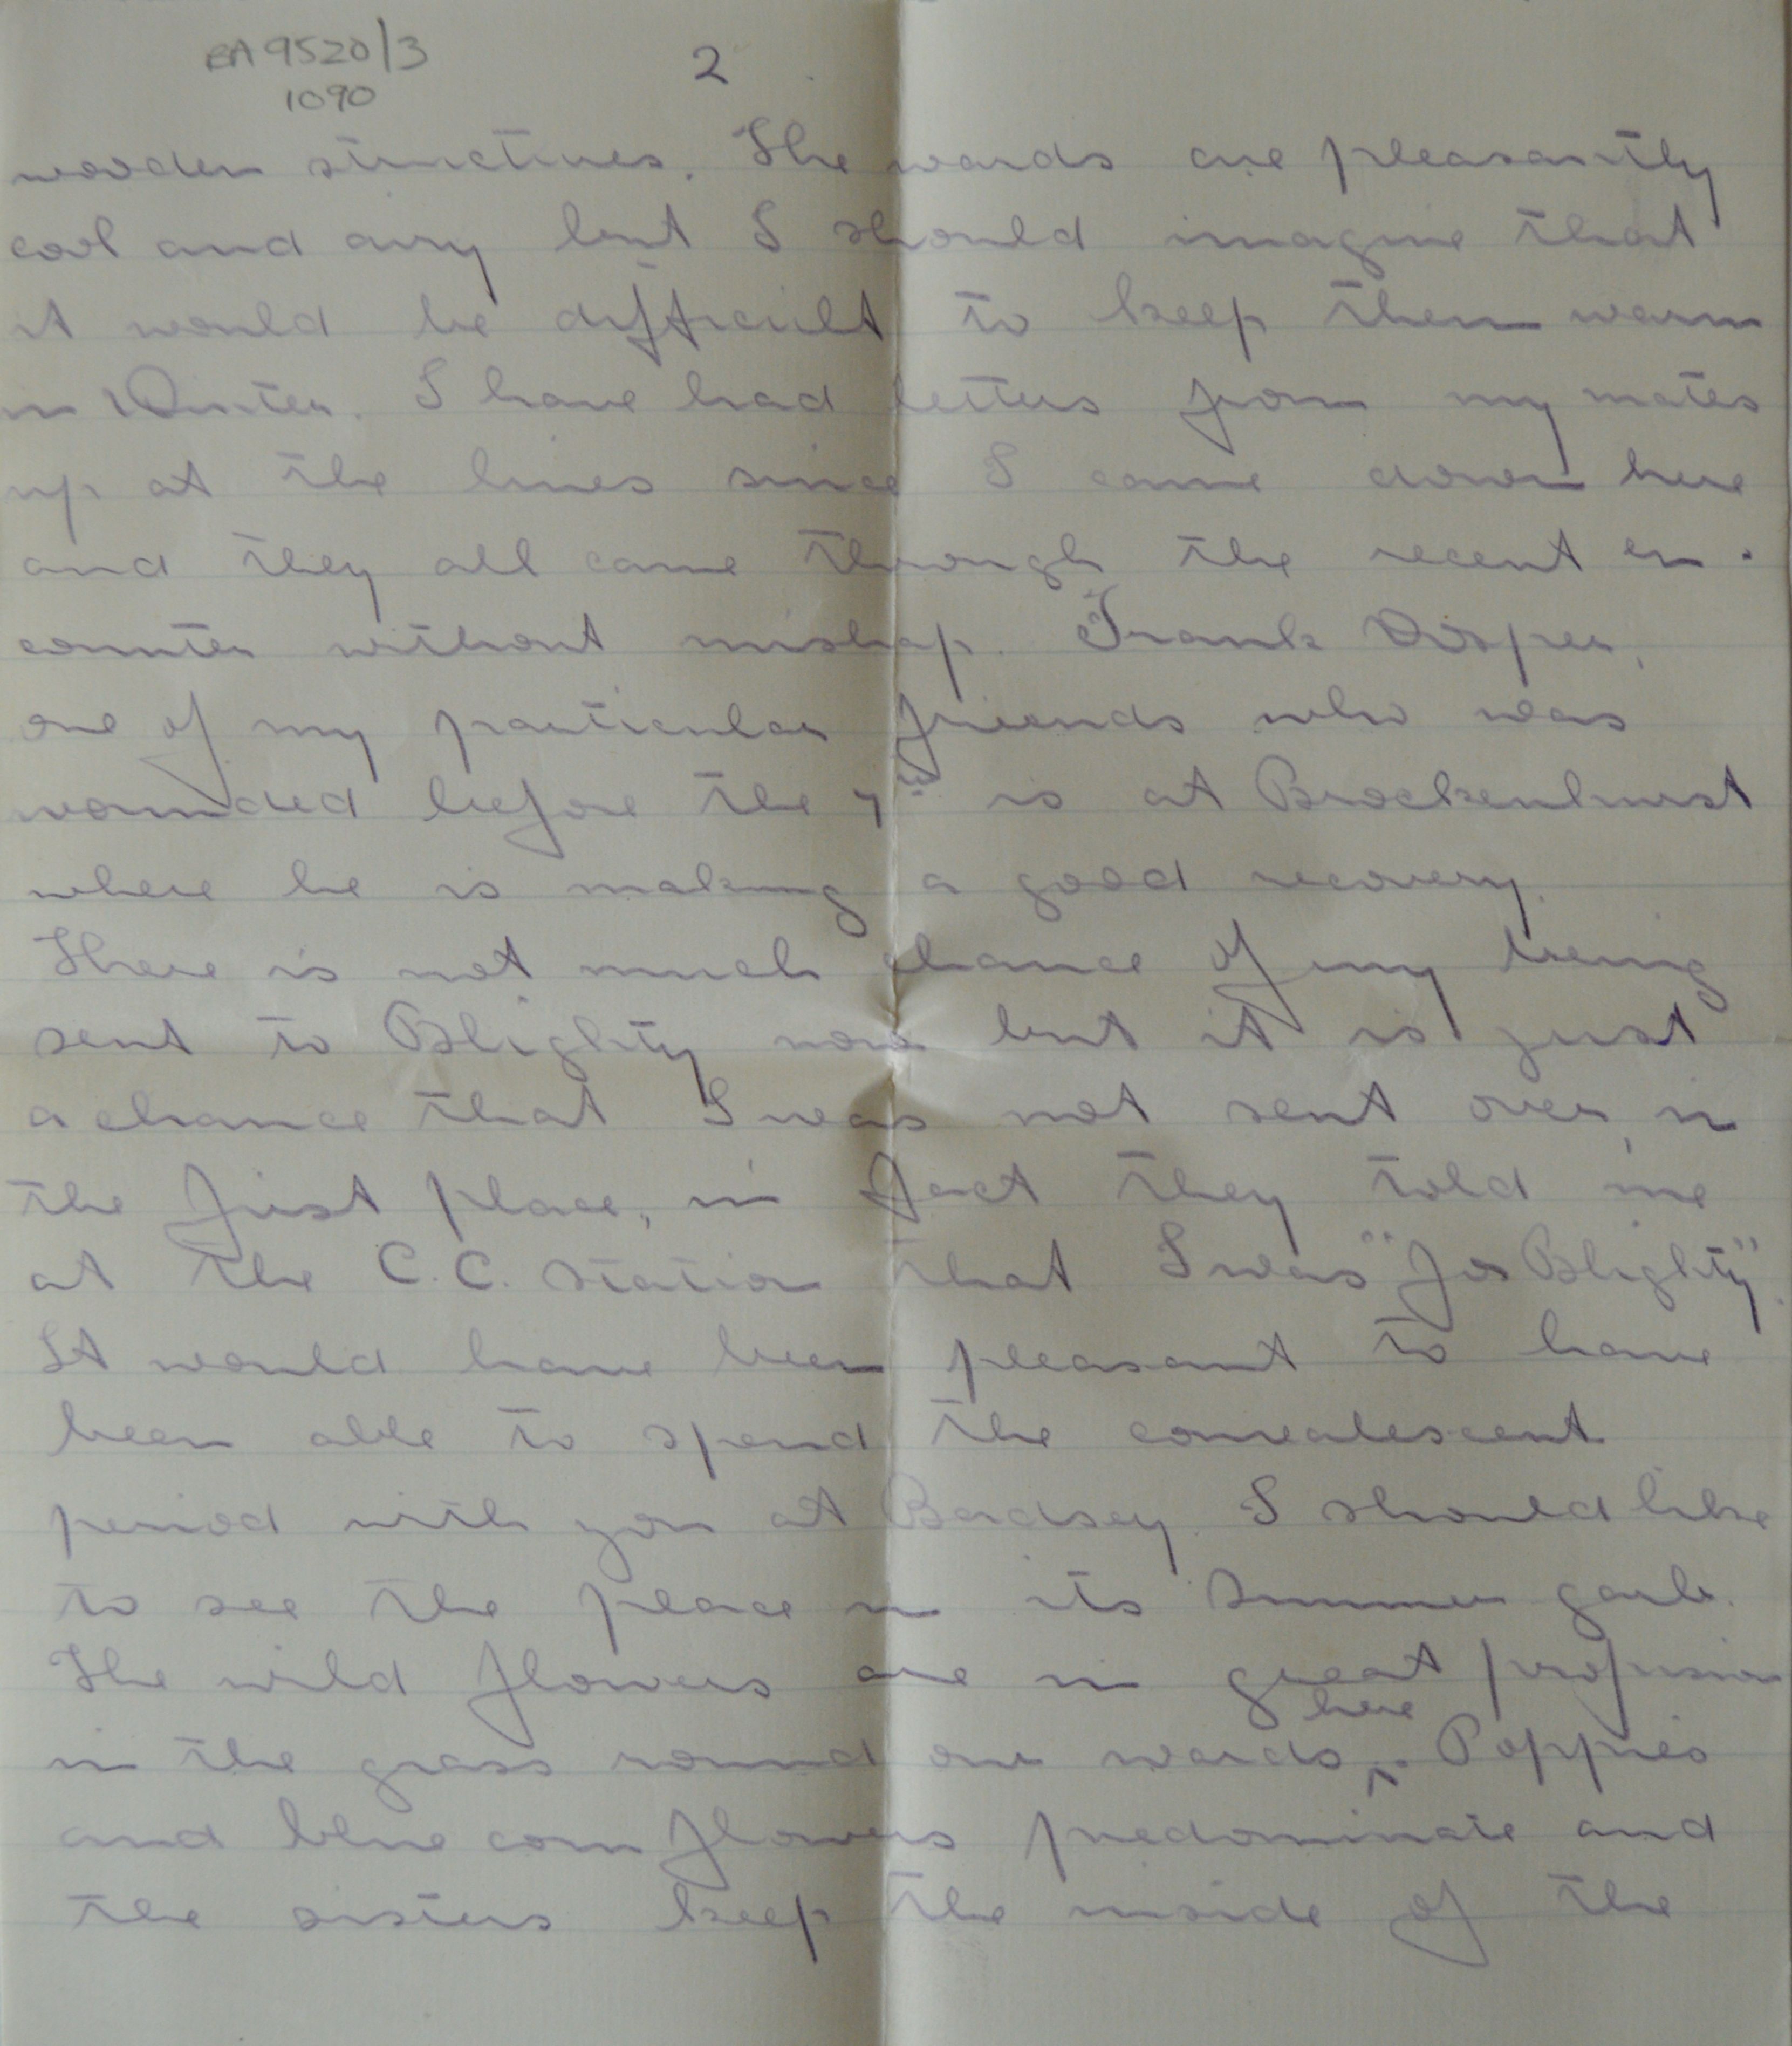 BA 9520/3
1090
2
wooden structures. The wards are pleasantly
cool and airy but I should imagine that
it would be difficult to keep them warm
in Winter. I have had letters from my mates
up at the lines since I came down here
and they all came through the recent en-
counter without mishap. Frank
one of my particular friends who was
wounded before the 7th is at Brockenhurst
where he is making a good recovery.
There is not much chance of my being
sent to Blighty now but it is just
a chance that I was not sent over, in
the first place, in fact they told me
at the C.C. Station that I was "for Blighty".
It would have been pleasant to have
been able to spend the convalescent
period with you at Badsey. I should like
to see the place in its Summer garb.
The wild flowers are in great profusion
in the grass round our wards here. Poppies
and blue corn flowers predominate and
the sisters keep the inside of the